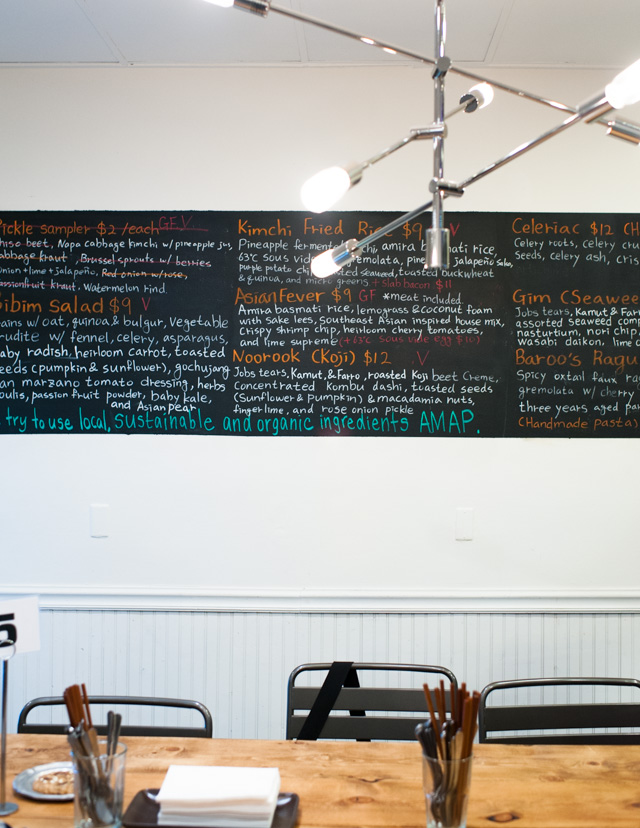 Pickle sampler $2 /each GF V
Shiso beet, Napa cabbage kimchi w/ pineapple jus,
cabbage kraut, Brussel sprouts w/ berries
onion + lime + jalapeño, Red onion w/ rose,
passionfruit kraut, Watermelon rind.
Bibim Salad $9 V
ains w/ oat, quinoa & bulgur, Vegetable
rudite w/ fennel, celery, asparagus,
baby radish, heirloom carrot, toasted
eeds (pumpkin & sunflower), gochujang
an marzano tomato dressing, herbs
oulis, passion fruit powder, baby kale,
and Asian pear
Kimchi Fried Rice $9 V
Pineapple fermented kimchi, amira basmati rice,
63°C Sous vide gremolata, pineapple jalapeño salsa,
purple potato chip, toasted seaweed, toasted buckwheat
& quinoa, and micro greens + slab bacon $11
Asian Fever $9 GF *meat included.
Amira basmati rice, lemongrass & coconut foam
with sake lees, Southeast Asian inspired house mix,
Crispy shrimp chip, heirloom cherry tomatoes
and lime supreme (+63°C Sous vide egg $10)
Noorook (Koji) $12 V
Jobs tears, Kamut, & Farro, roasted Koji beet Creme,
Concentrated Kombu dashi, toasted seeds
(Sunflower & pumpkin) & macadamia nuts,
finger lime, and rose onion pickle
Celeriac $12 (H
Celery roots, celery cru
Seeds, celery ash, cris
Gim (Seawee
Jobs tears, Kamut & Farr
assorted Seaweed comp
nasturtium, nori chip,
wasabi daikon, lime c
Baroo's Ragu
Spicy oxtail faux ra
gremolata w/ cherry
three years aged par
(Handmade pasta)
try to use local, sustainable and organic ingredients AMAP.